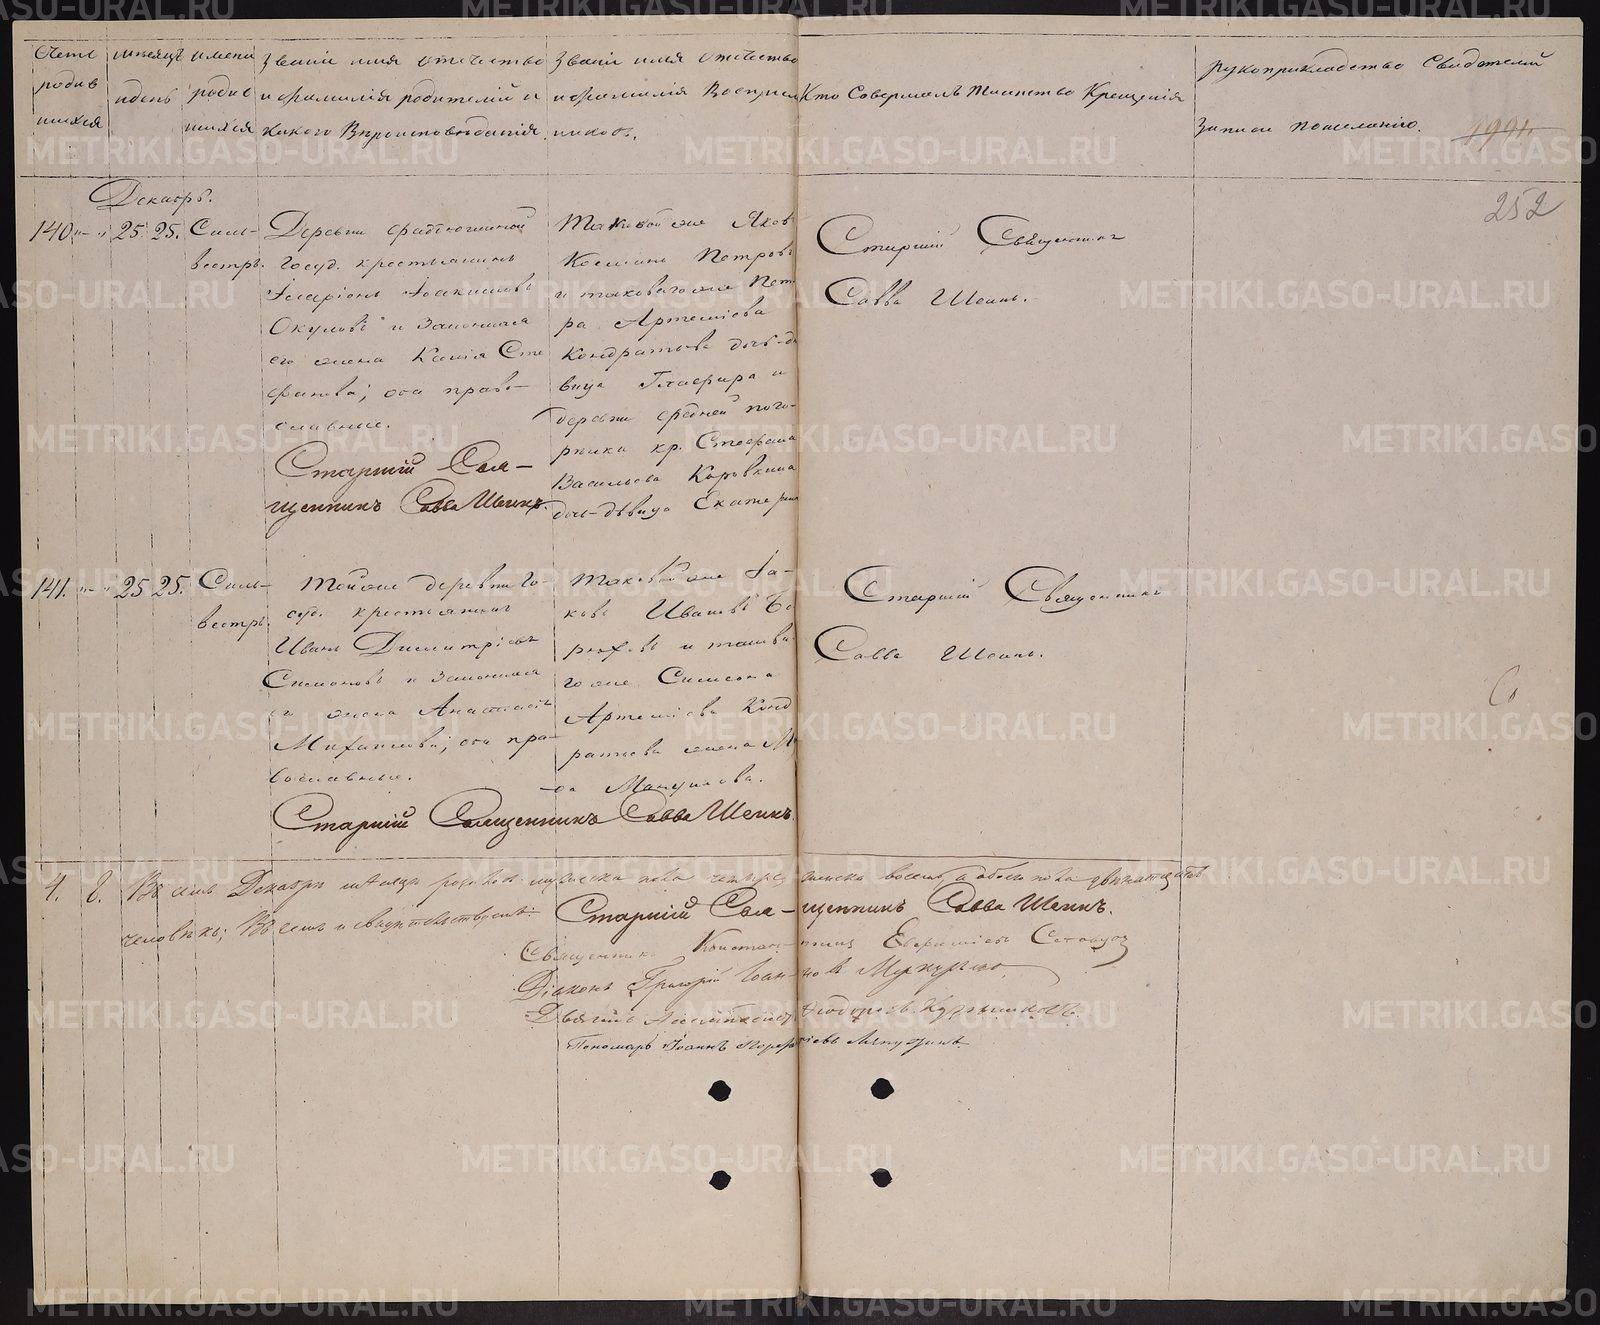 Счетъ родив шихся
мѣсяцъ и день
имена родив шихся
Званіе имя отечество
и фамилія родителей и
какого Вѣроисповѣданія.
Званіе имя отечество
и фамилія Воспріем
никовъ.
Кто Совершалъ Таинство Крещенія
Рукоприкладство Свидѣтелей
записи по желанію.
252
Декабрь.
140. 25. 25.
Силь-
вестръ.
Деревни
Госуд. крестьянинъ
Иларіонъ Іоакимовъ
Окуловъ и Законная
его жена Ксенія Сте
фанова; оба право-
славные.
Старшій Свя-
щенникъ Савва Шеинъ.
Таковой же Яковъ
Косминъ Петровъ
и таковаго же Пет
ра Артеміева
Кондратьева дочь дѣ
вица Глафира и
деревни средней
кр. Стефана
Васильева Коровкина
дочь-дѣвица Екатерина
Старшій Священникъ
Савва Шеинъ.
141. 25 25.
Силь-
вестръ.
Тойже деревни Го-
суд. крестьянинъ
Иванъ Димитріевъ
Симоновъ и Законная
его жена Анастасія
Михаилова; оба пра-
вославные.
Старшій Священникъ Савва Шеинъ.
Таковой же Іа-
ковъ Ивановъ Бо
рюховъ и таковаго
же Симеона
Артеміева Конд
ратьева жена
Мануилова.
Старшій Священникъ
Савва Шеинъ.
4. 8. Въ семъ Декабрѣ мѣсяцѣ родилось мужеска пола четыре, женска восемь, а обоего пола двѣнатцать
человѣкъ; Въ семъ и свидѣтельствуемъ:
Старшій Свя-щенникъ Савва Шеинъ.
Священникъ Константинъ
Діаконъ Григорій Іоанновъ
Пономарь Іоаннъ